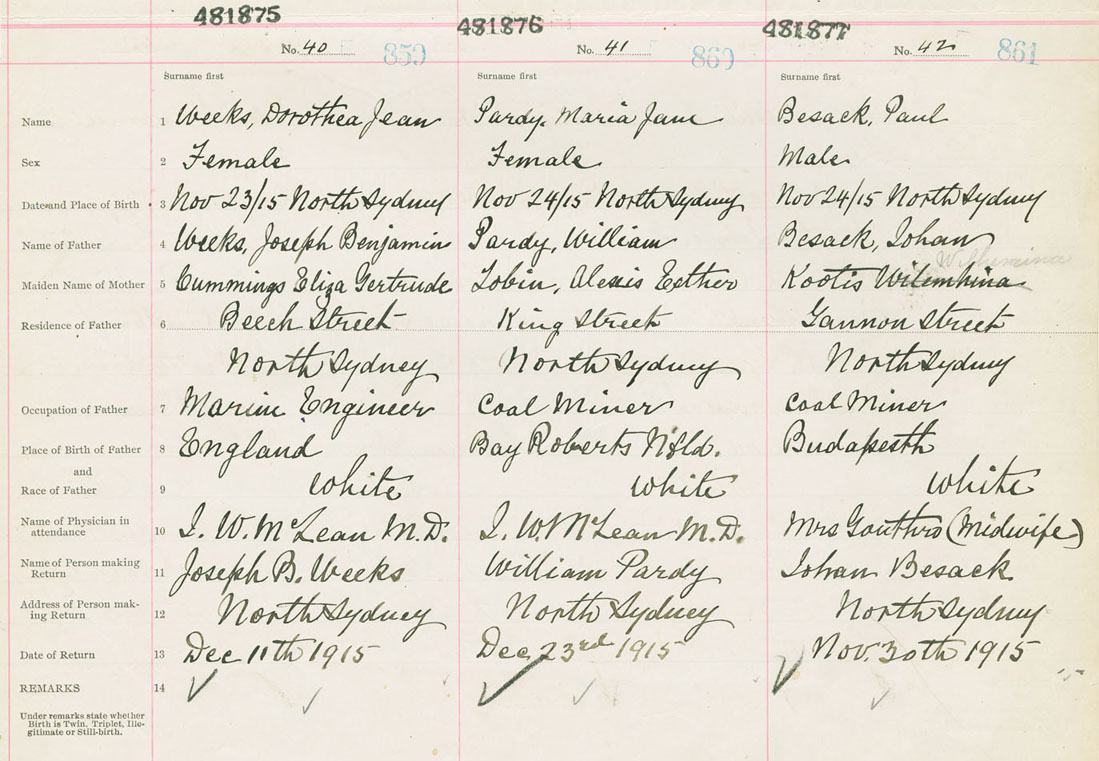 481875 481876 481877
No. 40 859 No. 41 860 No. 42 861
Surname first Surname first Surname first
Name 1 Weeks, Dorothea Jean Pardy, Maria Jane Besack, Paul
Sex 2 Female Female Male
Date and Place of Birth 3 Nov 23/15 North Sydney Nov 24/15 North Sydney Nov 24/15 North Sydney
Name of Father 4 Weeks, Joseph Benjamin Pardy, William Besack, Johan
Wilhemina
Maiden Name of Mother 5 Cummings Eliza Gertrude Tobin, Alexis Esther Kootis Wilemhina
Residence of Father 6 Beech Street King Street Gannon Street
North Sydney North Sydney North Sydney
Occupation of Father 7 Marine Engineer Coal Miner Coal Miner
Place of Birth of Father 8 England Bay Roberts Nfld. Budapesth
and
Race of Father 9 White White White
Name of Physician in
attendance 10 J. W. McLean M.D. J. W. McLean M.D. Mrs Gouthro (Midwife)
Name of Person making
Return 11 Joseph B. Weeks William Pardy Johan Besack
Address of Person mak-
ing Return 12 North Sydney North Sydney North Sydney
Date of Return 13 Dec 11th 1915 Dec 23rd 1915 Nov. 30th 1915
REMARKS 14
Under remarks state whether
Birth is Twin, Triplet, Ille-
gitimate or Still-birth.